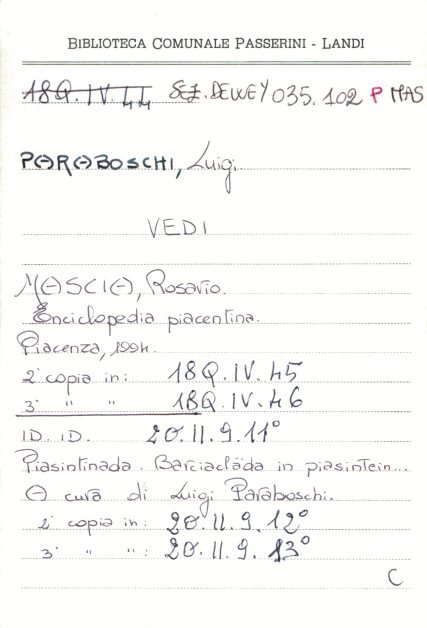 BIBLIOTECA COMUNALE PASSERINI - LANDI
18Q.IV.44 SEZ. DEWEY 035.102 P MAS
PARABOSCHI, Luigi
VEDI
MASCIA, Rosario.
Enciclopedia piacentina.
Piacenza, 1994.
2ª copia in: 18Q.IV.45
3ª " " 18Q.IV.46
ID. ID. 20.II.9.11°
Piasintinada. Barciaclàda in piasintein...
A cura di Luigi Paraboschi.
2ª copia in: 20.II.9.12°
3ª " ": 20.II.9.13°
C